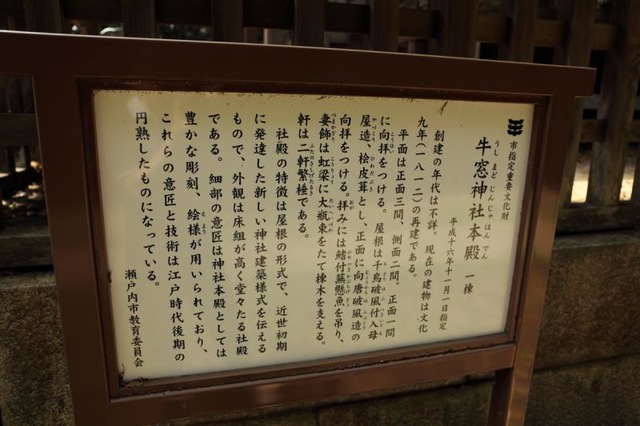 市指定重要文化財
牛窓神社本殿 一棟
うしまどじんじゃほんでん
平成十六年十一月一日指定
創建の年代は不詳。現在の建物は文化
九年(一八一二)の再建である。
平面は正面三間、側面二間。正面一間
に向拝をつける。屋根は千鳥破風付入母
屋造、桧皮葺とし、正面に向唐破風造の
向拝をつける。拝みには鰭付蕪懸魚を吊り、
妻飾は虹梁に大瓶束をたて棟木を支える。
軒は二軒繁棰である。
社殿の特徴は屋根の形式で、近世初期
に発達した新しい神社建築様式を伝える
もので、外観は床組が高く堂々たる社殿
である。細部の意匠は神社本殿としては
豊かな彫刻、絵様が用いられており、
これらの意匠と技術は江戸時代後期の
円熟したものになっている。
瀬戸内市教育委員会